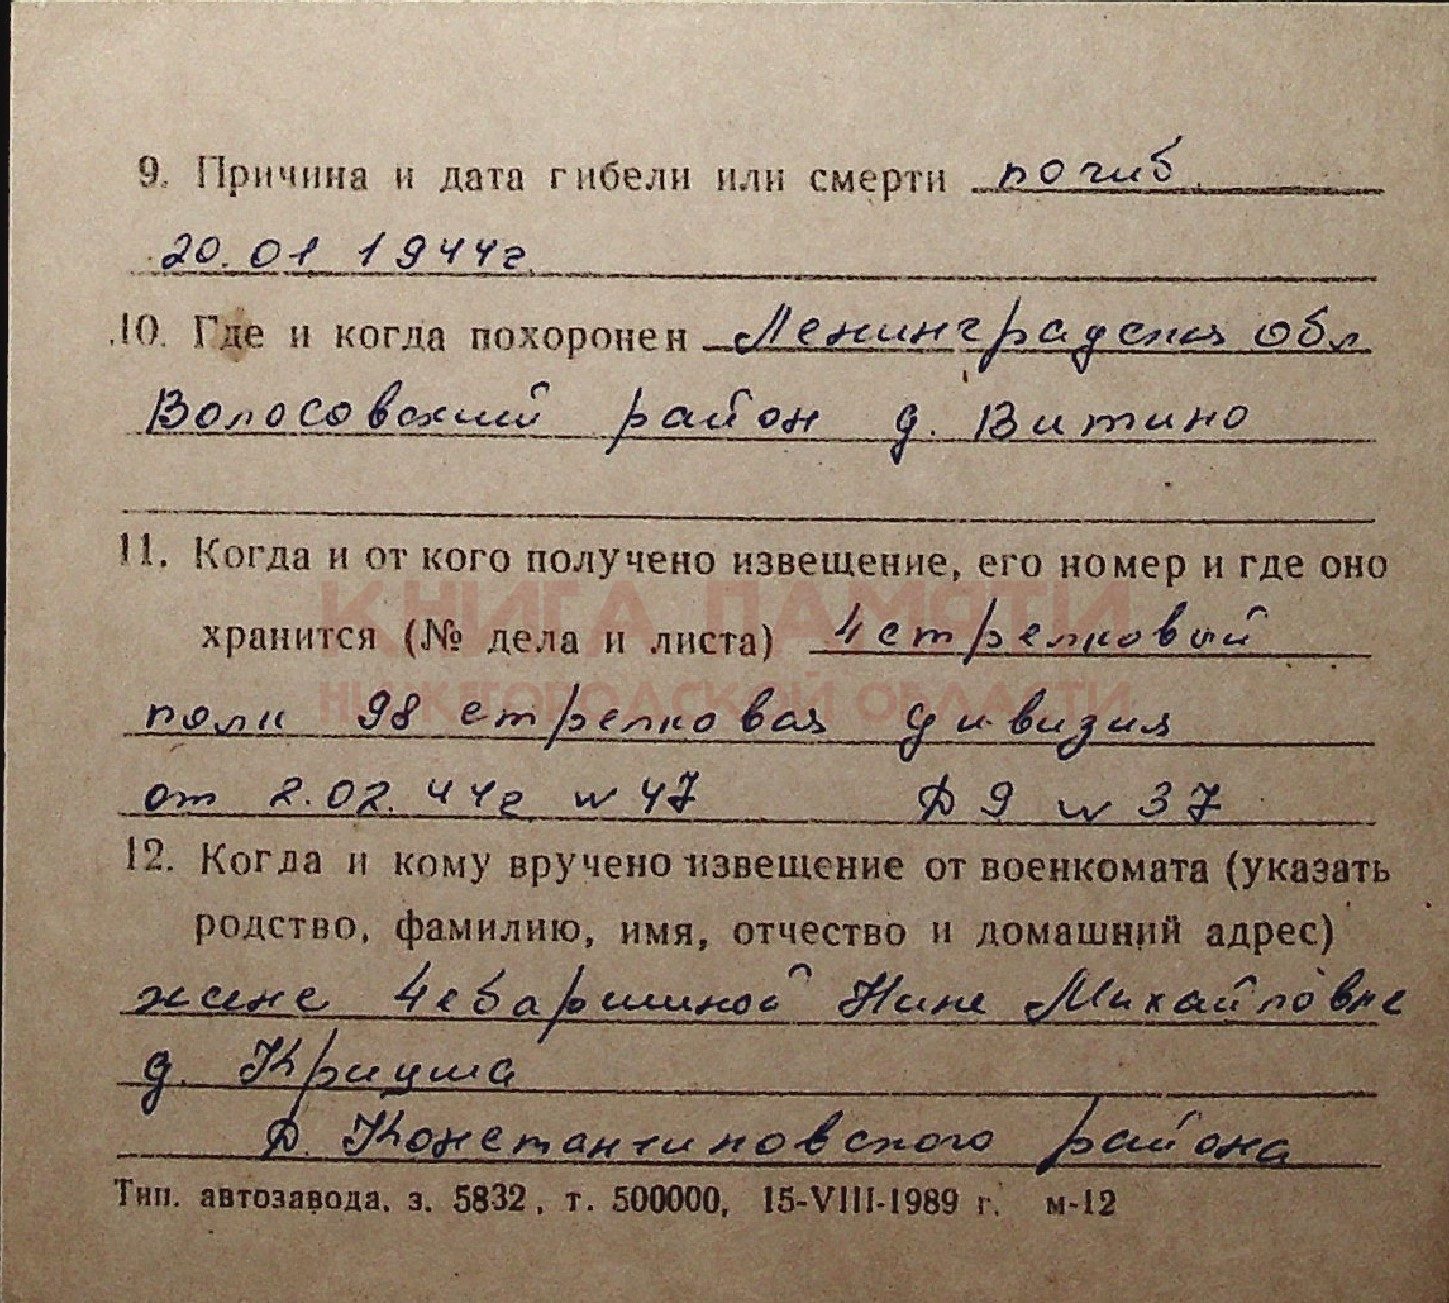 9. Причина и дата гибели или смерти погиб
20.01 1944г.
10. Где и когда похоронен Ленинградская обл
Волосовский район д. Витино
11. Когда и от кого получено извещение, его номер и где оно
КНИГА ПАМЯТИ
хранится (№ дела и листа) 4 стрелковый
НИЖЕГОРОДСКОЙ ОБЛАСТИ
полк 98 стрелковая дивизия
от 2.02.44г N 47 Д 9 N 37
12. Когда и кому вручено извещение от военкомата (указать
родство, фамилию, имя, отчество и домашний адрес)
жене Чебаршиной Нине Михайловне
д. Криуша
Д. Константиновского района
Тип. автозавода, з. 5832, т. 500000, 15-VIII-1989 г. м-12